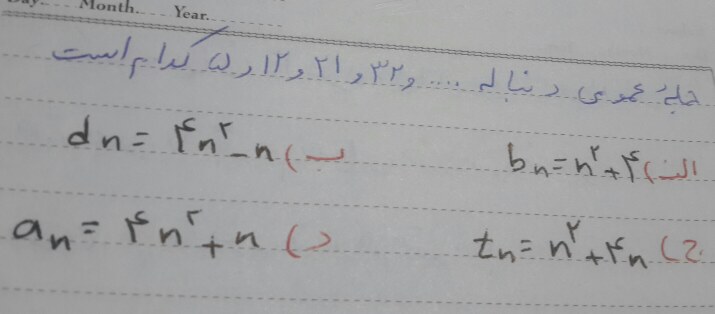 Day. Month. Year.
جملهٔ عمومی دنباله ....و۳۲و۲۱و۱۲و۵ کدام است
الف) bₙ=n²+۴ ب) dₙ=۴n²-n
ج) tₙ=n²+۴n د) aₙ=۴n²+n